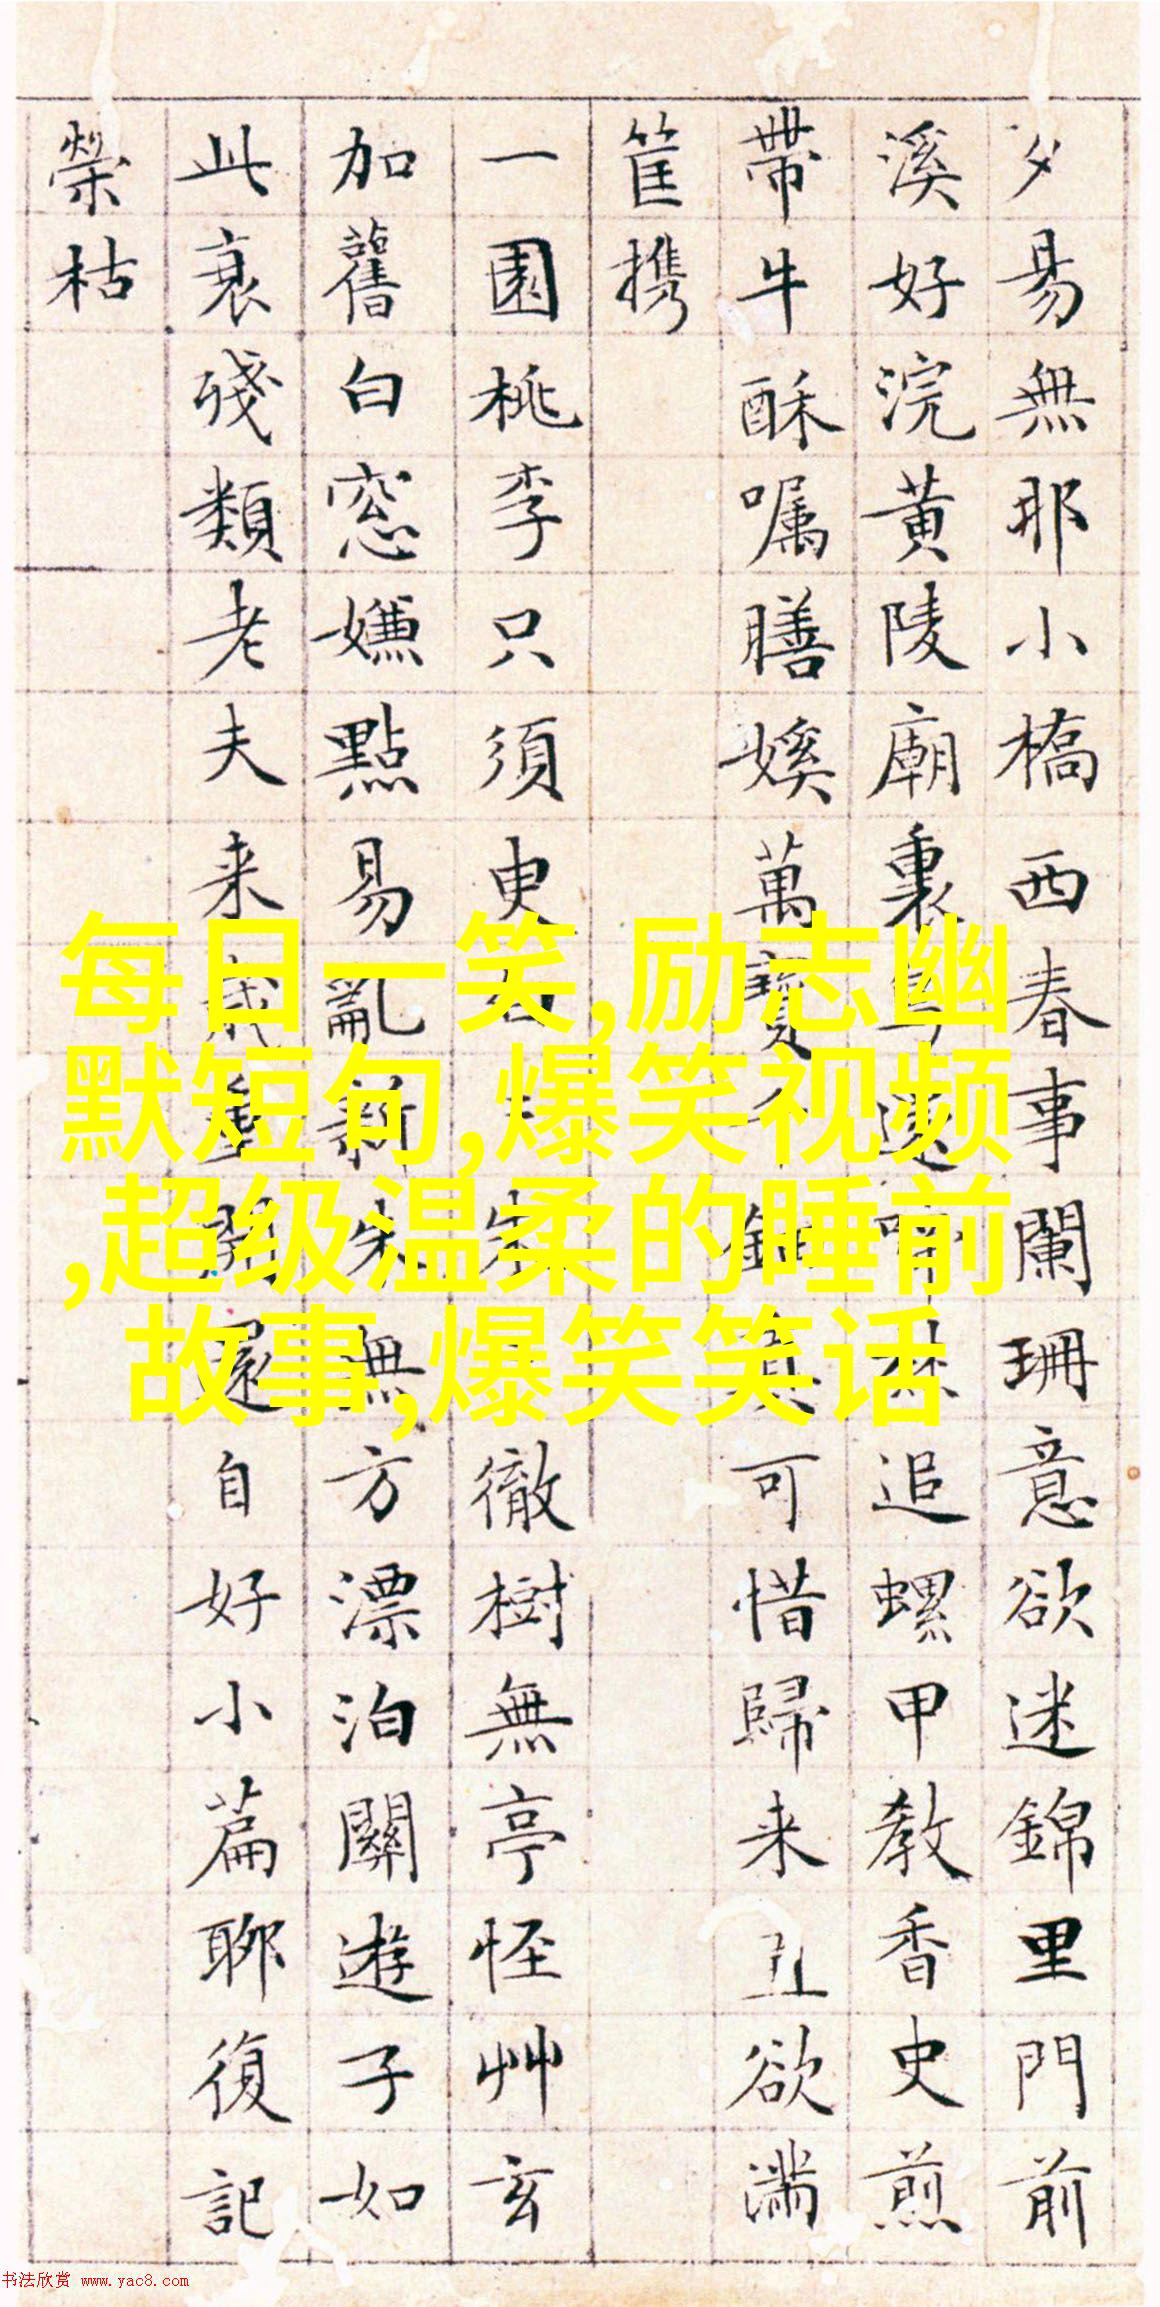 夕易無耶小橋西春事闌珊意欲迷錦里門前
溪好浣黃陵廟裏遠追螺甲教香史煎
帶牛酥嘱膳媛萬寶鈿可惜歸来丑欲满
筐携
一園桃李只須徹樹無亭怪艸玄
加舊白窓嫌點易亂新朱無方漂泊關遊子如
此衰殘類老夫来歲重開還自好小篇聊復記
榮枯
每日一笑,励志幽
默短句,爆笑视频
,超级温柔的睡前
故事,爆笑笑话
书法欣赏 www.yac8.com